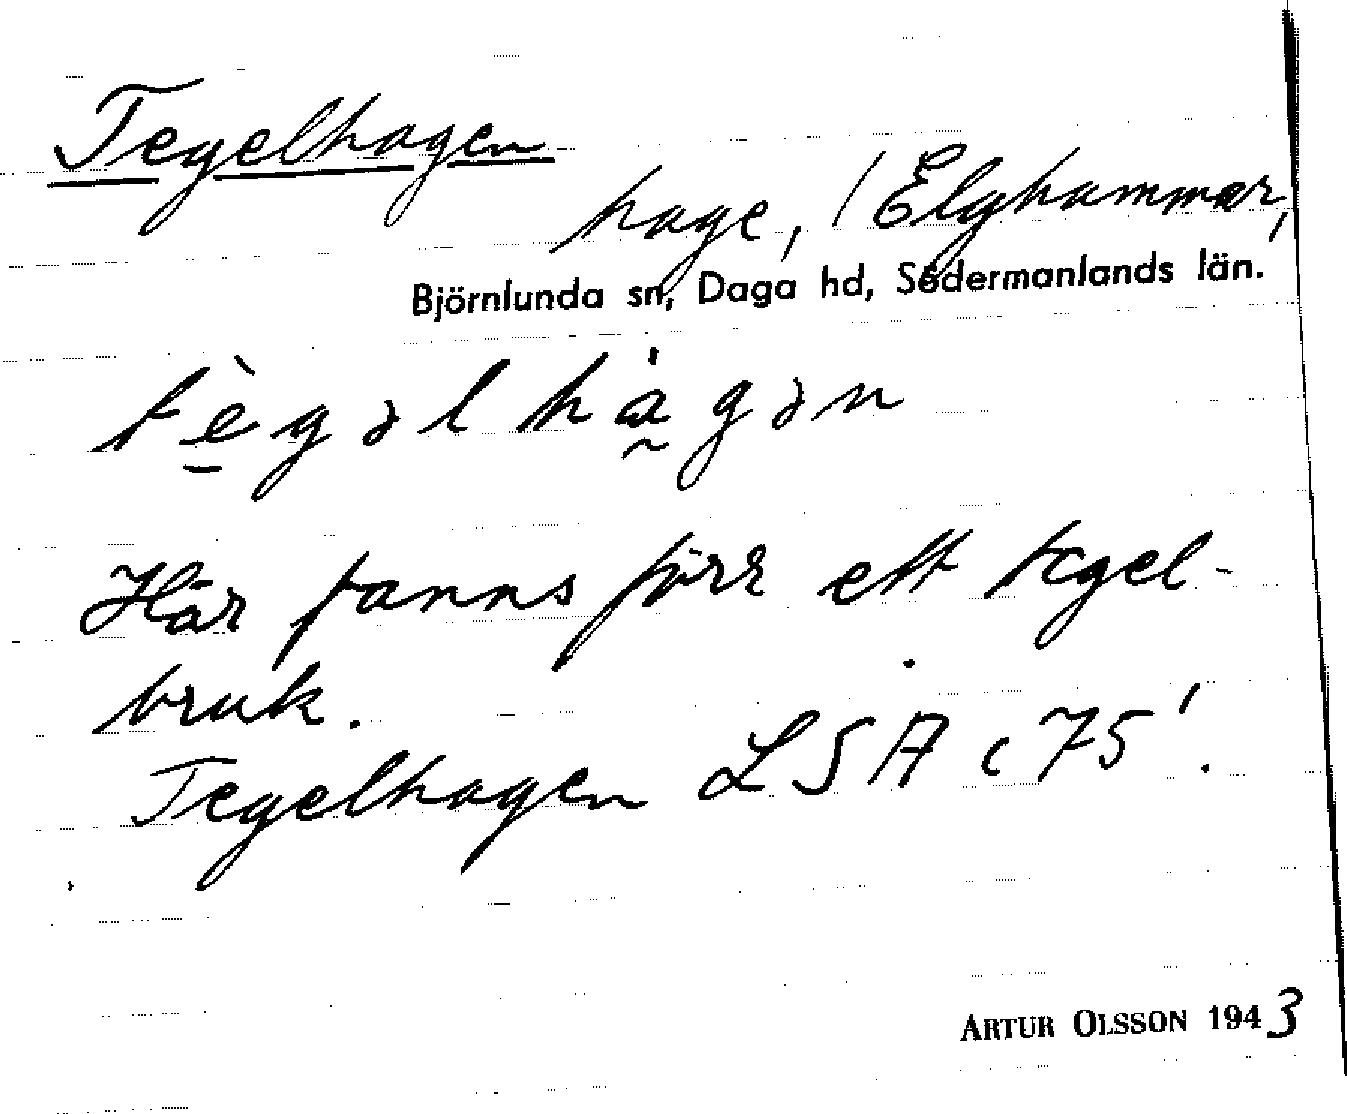 Tegelhagen
hage, / Elghammar,
Björnlunda sn, Daga hd, Södermanlands län.
tègəlhàgən
Här fanns förr ett tegel-
bruk.
Tegelhagen LSA c 75'.
ARTUR OLSSON 1943